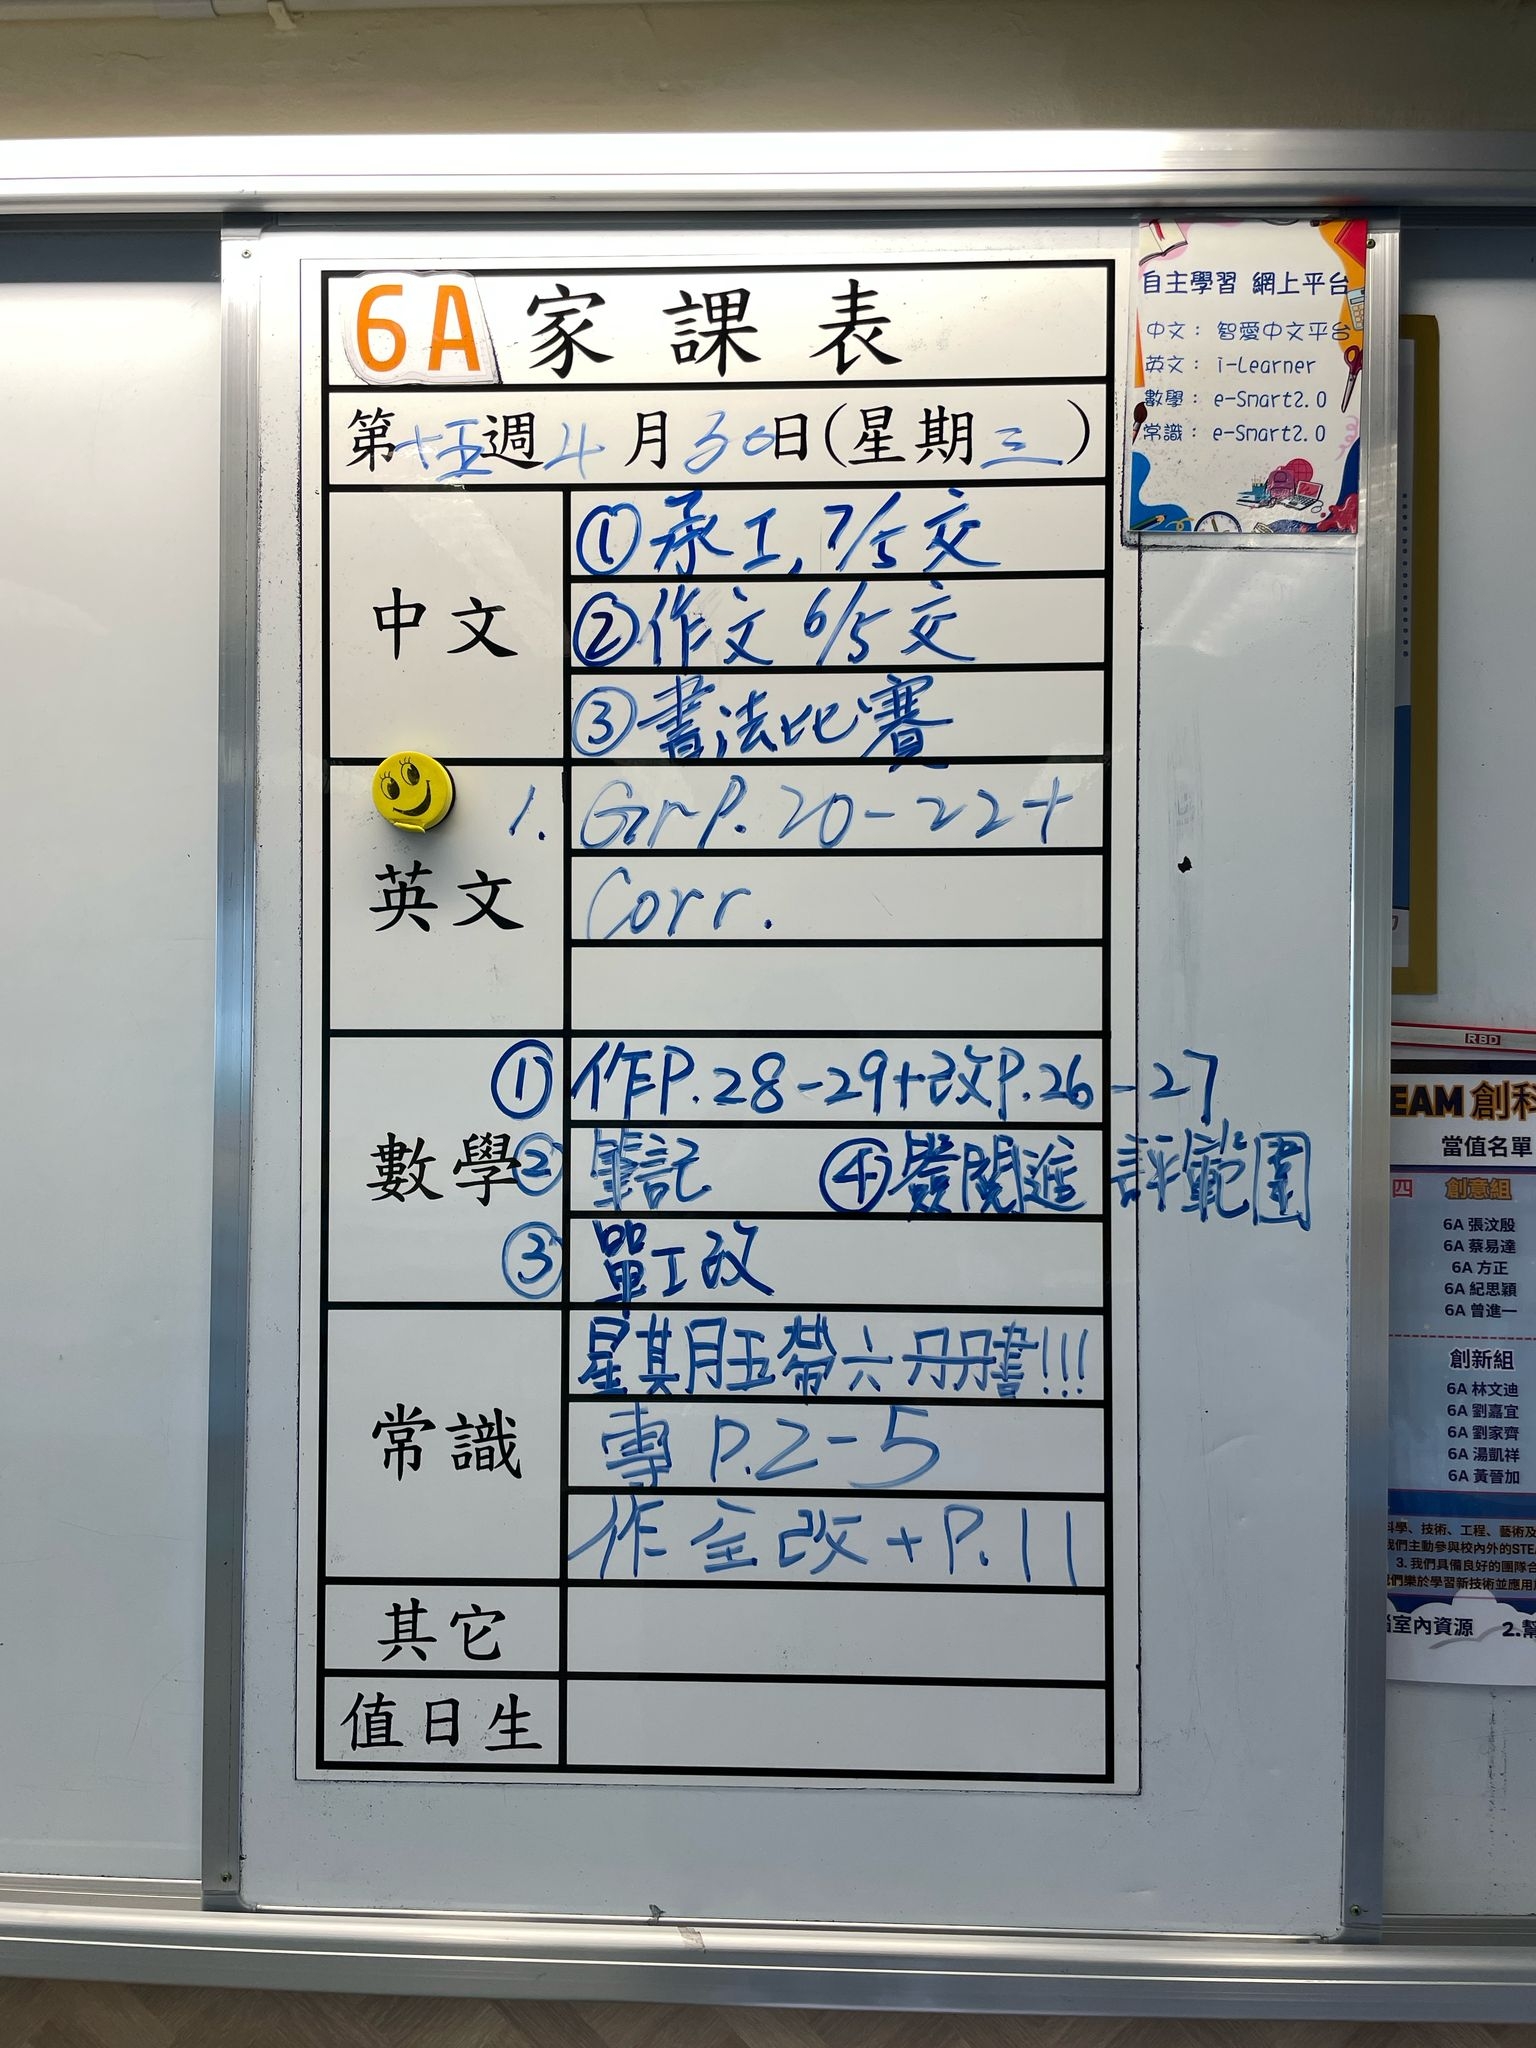 6A 家課表
第十五週4月30日(星期三)
中文
①承工,7/5交
②作文 6/5交
③書法比賽
英文
1. GrP.20-22+
Corr.
數學
①作P.28-29+改P.26-27
②筆記 ④簽閱進評範圍
③單工改
常識
星期五帶六冊書!!!
專 P.2-5
作全改+P.11
其它
值日生
自主學習 網上平台
中文: 智愛中文平台
英文: i-Learner
數學: e-Smart2.0
常識: e-Smart2.0
RBD
EAM 創科
當值名單
四 創意組
6A 張汶殷
6A 蔡易達
6A 方正
6A 紀思穎
6A 曾進一
創新組
6A 林文迪
6A 劉嘉宜
6A 劉家齊
6A 湯凱祥
6A 黃晉加
科學、技術、工程、藝術及
我們主動參與校內外的STE
3. 我們具備良好的團隊合
們樂於學習新技術並應用
室內資源 2.幫